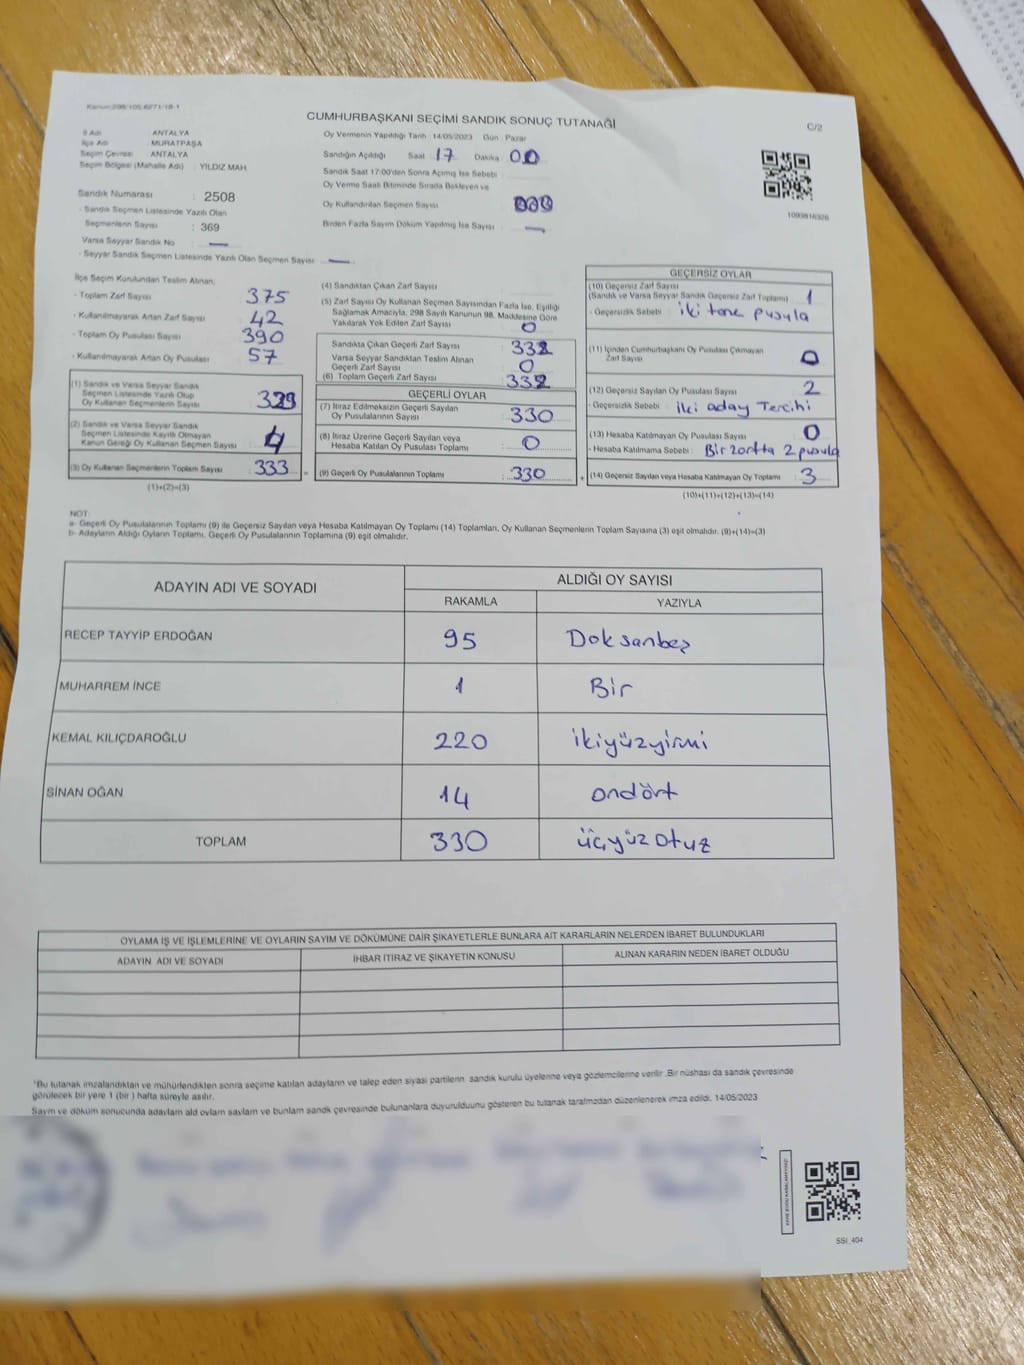 Kanun:298/105,6271/18-1
CUMHURBAŞKANI SEÇİMİ SANDIK SONUÇ TUTANAĞI
C/2
İl Adı : ANTALYA
İlçe Adı : MURATPAŞA
Seçim Çevresi : ANTALYA
Seçim Bölgesi (Mahalle Adı) : YILDIZ MAH.
Oy Vermenin Yapıldığı Tarih : 14/05/2023 Gün : Pazar
Sandığın Açıldığı Saat : 17 Dakika : 00
Sandık Saat 17:00'den Sonra Açılmış İse Sebebi :
Oy Verme Saati Bitiminde Sırada Bekleyen ve
Oy Kullandırılan Seçmen Sayısı
Birden Fazla Sayım Döküm Yapılmış İse Sayısı : —
Sandık Numarası : 2508
- Sandık Seçmen Listesinde Yazılı Olan
Seçmenlerin Sayısı : 369
Varsa Seyyar Sandık No : —
- Seyyar Sandık Seçmen Listesinde Yazılı Olan Seçmen Sayısı : —
İlçe Seçim Kurulundan Teslim Alınan;
- Toplam Zarf Sayısı : 375
- Kullanılmayarak Artan Zarf Sayısı : 42
- Toplam Oy Pusulası Sayısı : 390
- Kullanılmayarak Artan Oy Pusulası : 57
(1) Sandık ve Varsa Seyyar Sandık
Seçmen Listesinde Yazılı Olup
Oy Kullanan Seçmenlerin Sayısı : 329
(2) Sandık ve Varsa Seyyar Sandık
Seçmen Listesinde Kayıtlı Olmayan
Kanun Gereği Oy Kullanan Seçmen Sayısı : 4
(3) Oy Kullanan Seçmenlerin Toplam Sayısı : 333
(1)+(2)=(3)
(4) Sandıktan Çıkan Zarf Sayısı :
(5) Zarf Sayısı Oy Kullanan Seçmen Sayısından Fazla İse, Eşitliği
Sağlamak Amacıyla, 298 Sayılı Kanunun 98. Maddesine Göre
Yakılarak Yok Edilen Zarf Sayısı : 0
Sandıkta Çıkan Geçerli Zarf Sayısı : 332
Varsa Seyyar Sandıktan Teslim Alınan
Geçerli Zarf Sayısı : 0
(6) Toplam Geçerli Zarf Sayısı : 332
GEÇERLİ OYLAR
(7) İtiraz Edilmeksizin Geçerli Sayılan
Oy Pusulalarının Sayısı : 330
(8) İtiraz Üzerine Geçerli Sayılan veya
Hesaba Katılan Oy Pusulaları Toplamı : 0
(9) Geçerli Oy Pusulalarının Toplamı : 330
GEÇERSİZ OYLAR
(10) Geçersiz Zarf Sayısı
(Sandık ve Varsa Seyyar Sandık Geçersiz Zarf Toplamı) : 1
- Geçersizlik Sebebi : iki tane pusula
(11) İçinden Cumhurbaşkanı Oy Pusulası Çıkmayan
Zarf Sayısı : 0
(12) Geçersiz Sayılan Oy Pusulası Sayısı : 2
- Geçersizlik Sebebi : iki aday Tercihi
(13) Hesaba Katılmayan Oy Pusulası Sayısı : 0
- Hesaba Katılmama Sebebi : Bir zarfta 2 pusula
(14) Geçersiz Sayılan veya Hesaba Katılmayan Oy Toplamı : 3
(10)+(11)+(12)+(13)=(14)
1093816326
NOT:
a- Geçerli Oy Pusulalarının Toplamı (9) ile Geçersiz Sayılan veya Hesaba Katılmayan Oy Toplamı (14) Toplamları, Oy Kullanan Seçmenlerin Toplam Sayısına (3) eşit olmalıdır. (9)+(14)=(3)
b- Adayların Aldığı Oyların Toplamı, Geçerli Oy Pusulalarının Toplamına (9) eşit olmalıdır.
ADAYIN ADI VE SOYADI
ALDIĞI OY SAYISI
RAKAMLA YAZIYLA
RECEP TAYYİP ERDOĞAN 95 Doksanbeş
MUHARREM İNCE 1 Bir
KEMAL KILIÇDAROĞLU 220 ikiyüzyirmi
SİNAN OĞAN 14 ondört
TOPLAM 330 üçyüz otuz
OYLAMA İŞ VE İŞLEMLERİNE VE OYLARIN SAYIM VE DÖKÜMÜNE DAİR ŞİKAYETLERLE BUNLARA AİT KARARLARIN NELERDEN İBARET BULUNDUKLARI
ADAYIN ADI VE SOYADI İHBAR İTİRAZ VE ŞİKAYETİN KONUSU ALINAN KARARIN NEDEN İBARET OLDUĞU
*Bu tutanak imzalandıktan ve mühürlendikten sonra seçime katılan adayların ve talep eden siyasi partilerin sandık kurulu üyelerine veya gözlemcilerine verilir. Bir nüshası da sandık çevresinde
görülecek bir yere 1 (bir) hafta süreyle asılır.
Sayım ve döküm sonucunda adayların ald oyların sayların ve bunların sandık çevresinde bulunanlara duyurulduunu gösteren bu tutanak tarafmzdan düzenlenerek imza edildi. 14/05/2023
SSI_404